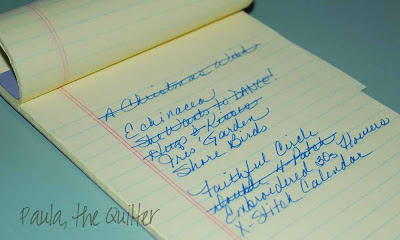 A Christmas Wish
Echinacea
She Wants to DANCE!
Hugs & Kisses
Garden
Shore Birds
Faithful Circle
Double 4 Patch
Embroidered 30s Flowers
X-Stitch Calendar
Paula, the Quilter